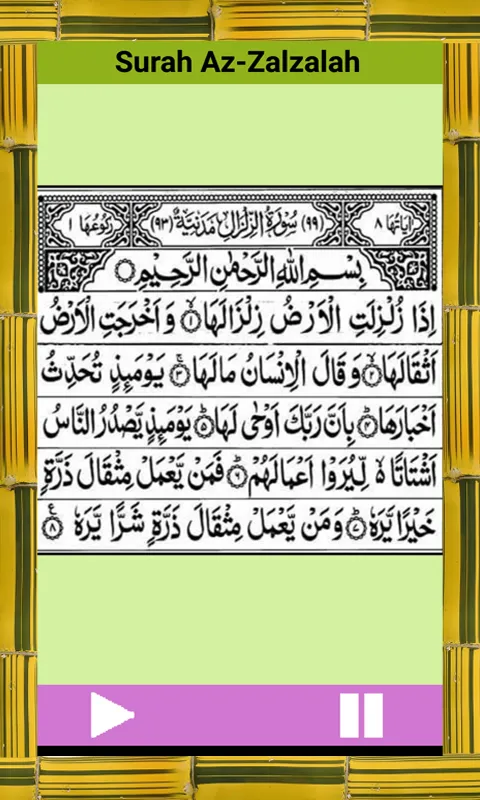 Surah Az-Zalzalah
اٰيَاتُهَا ٨ (٩٩) سُوْرَةُ الزِّلْزَالِ مَدَنِيَّةٌ (٩٣) رُكُوْعُهَا ١
بِسْمِ اللّٰهِ الرَّحْمٰنِ الرَّحِيْمِ
اِذَا زُلْزِلَتِ الْاَرْضُ زِلْزَالَهَا ۙ١ وَ اَخْرَجَتِ الْاَرْضُ
اَثْقَالَهَا ۙ٢ وَ قَالَ الْاِنْسَانُ مَا لَهَا ۚ٣ يَوْمَئِذٍ تُحَدِّثُ
اَخْبَارَهَا ۙ٤ بِاَنَّ رَبَّكَ اَوْحٰى لَهَا ؕ٥ يَوْمَئِذٍ يَّصْدُرُ النَّاسُ
اَشْتَاتًا ۙ۬ لِّيُرَوْا اَعْمَالَهُمْ ؕ٦ فَمَنْ يَّعْمَلْ مِثْقَالَ ذَرَّةٍ
خَيْرًا يَّرَهٗ ؕ٧ وَ مَنْ يَّعْمَلْ مِثْقَالَ ذَرَّةٍ شَرًّا يَّرَهٗ ۧ٨